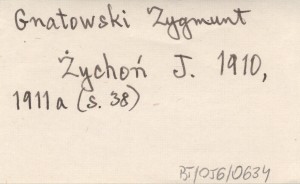 Gnatowski Zygmunt
Żychoń J. 1910,
1911a (s. 38)
BJ/OJ6/0634